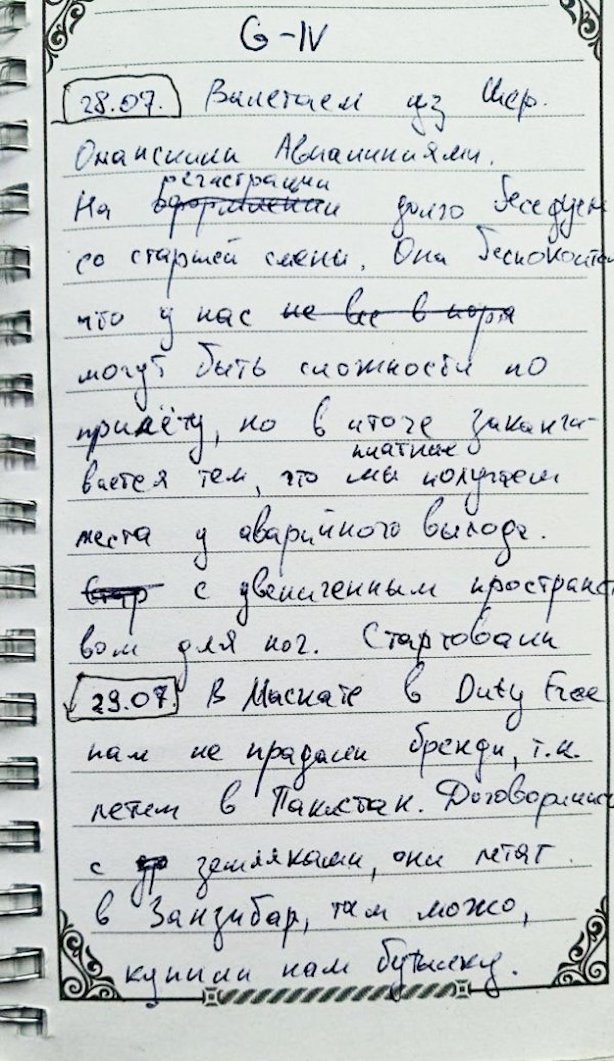 G-IV
28.07. Вылетаем из Шер.
Оманскими Авиалиниями.
регистрации
На оформлении долго беседуем
со старшей смены. Она беспокоится
что у нас не все в поря
могут быть сложности по
прилёту, но в итоге заканчи-
платные
вается тем, что мы получаем
места у аварийного выхода.
Стар с увеличенным пространст
вом для ног. Стартовали
29.07. В Маскате в Duty Free
нам не продали бренди, т.к.
летим в Пакистан. Договорились
с земляками, они летят
в Занзибар, там можо,
купили нам бутылку.